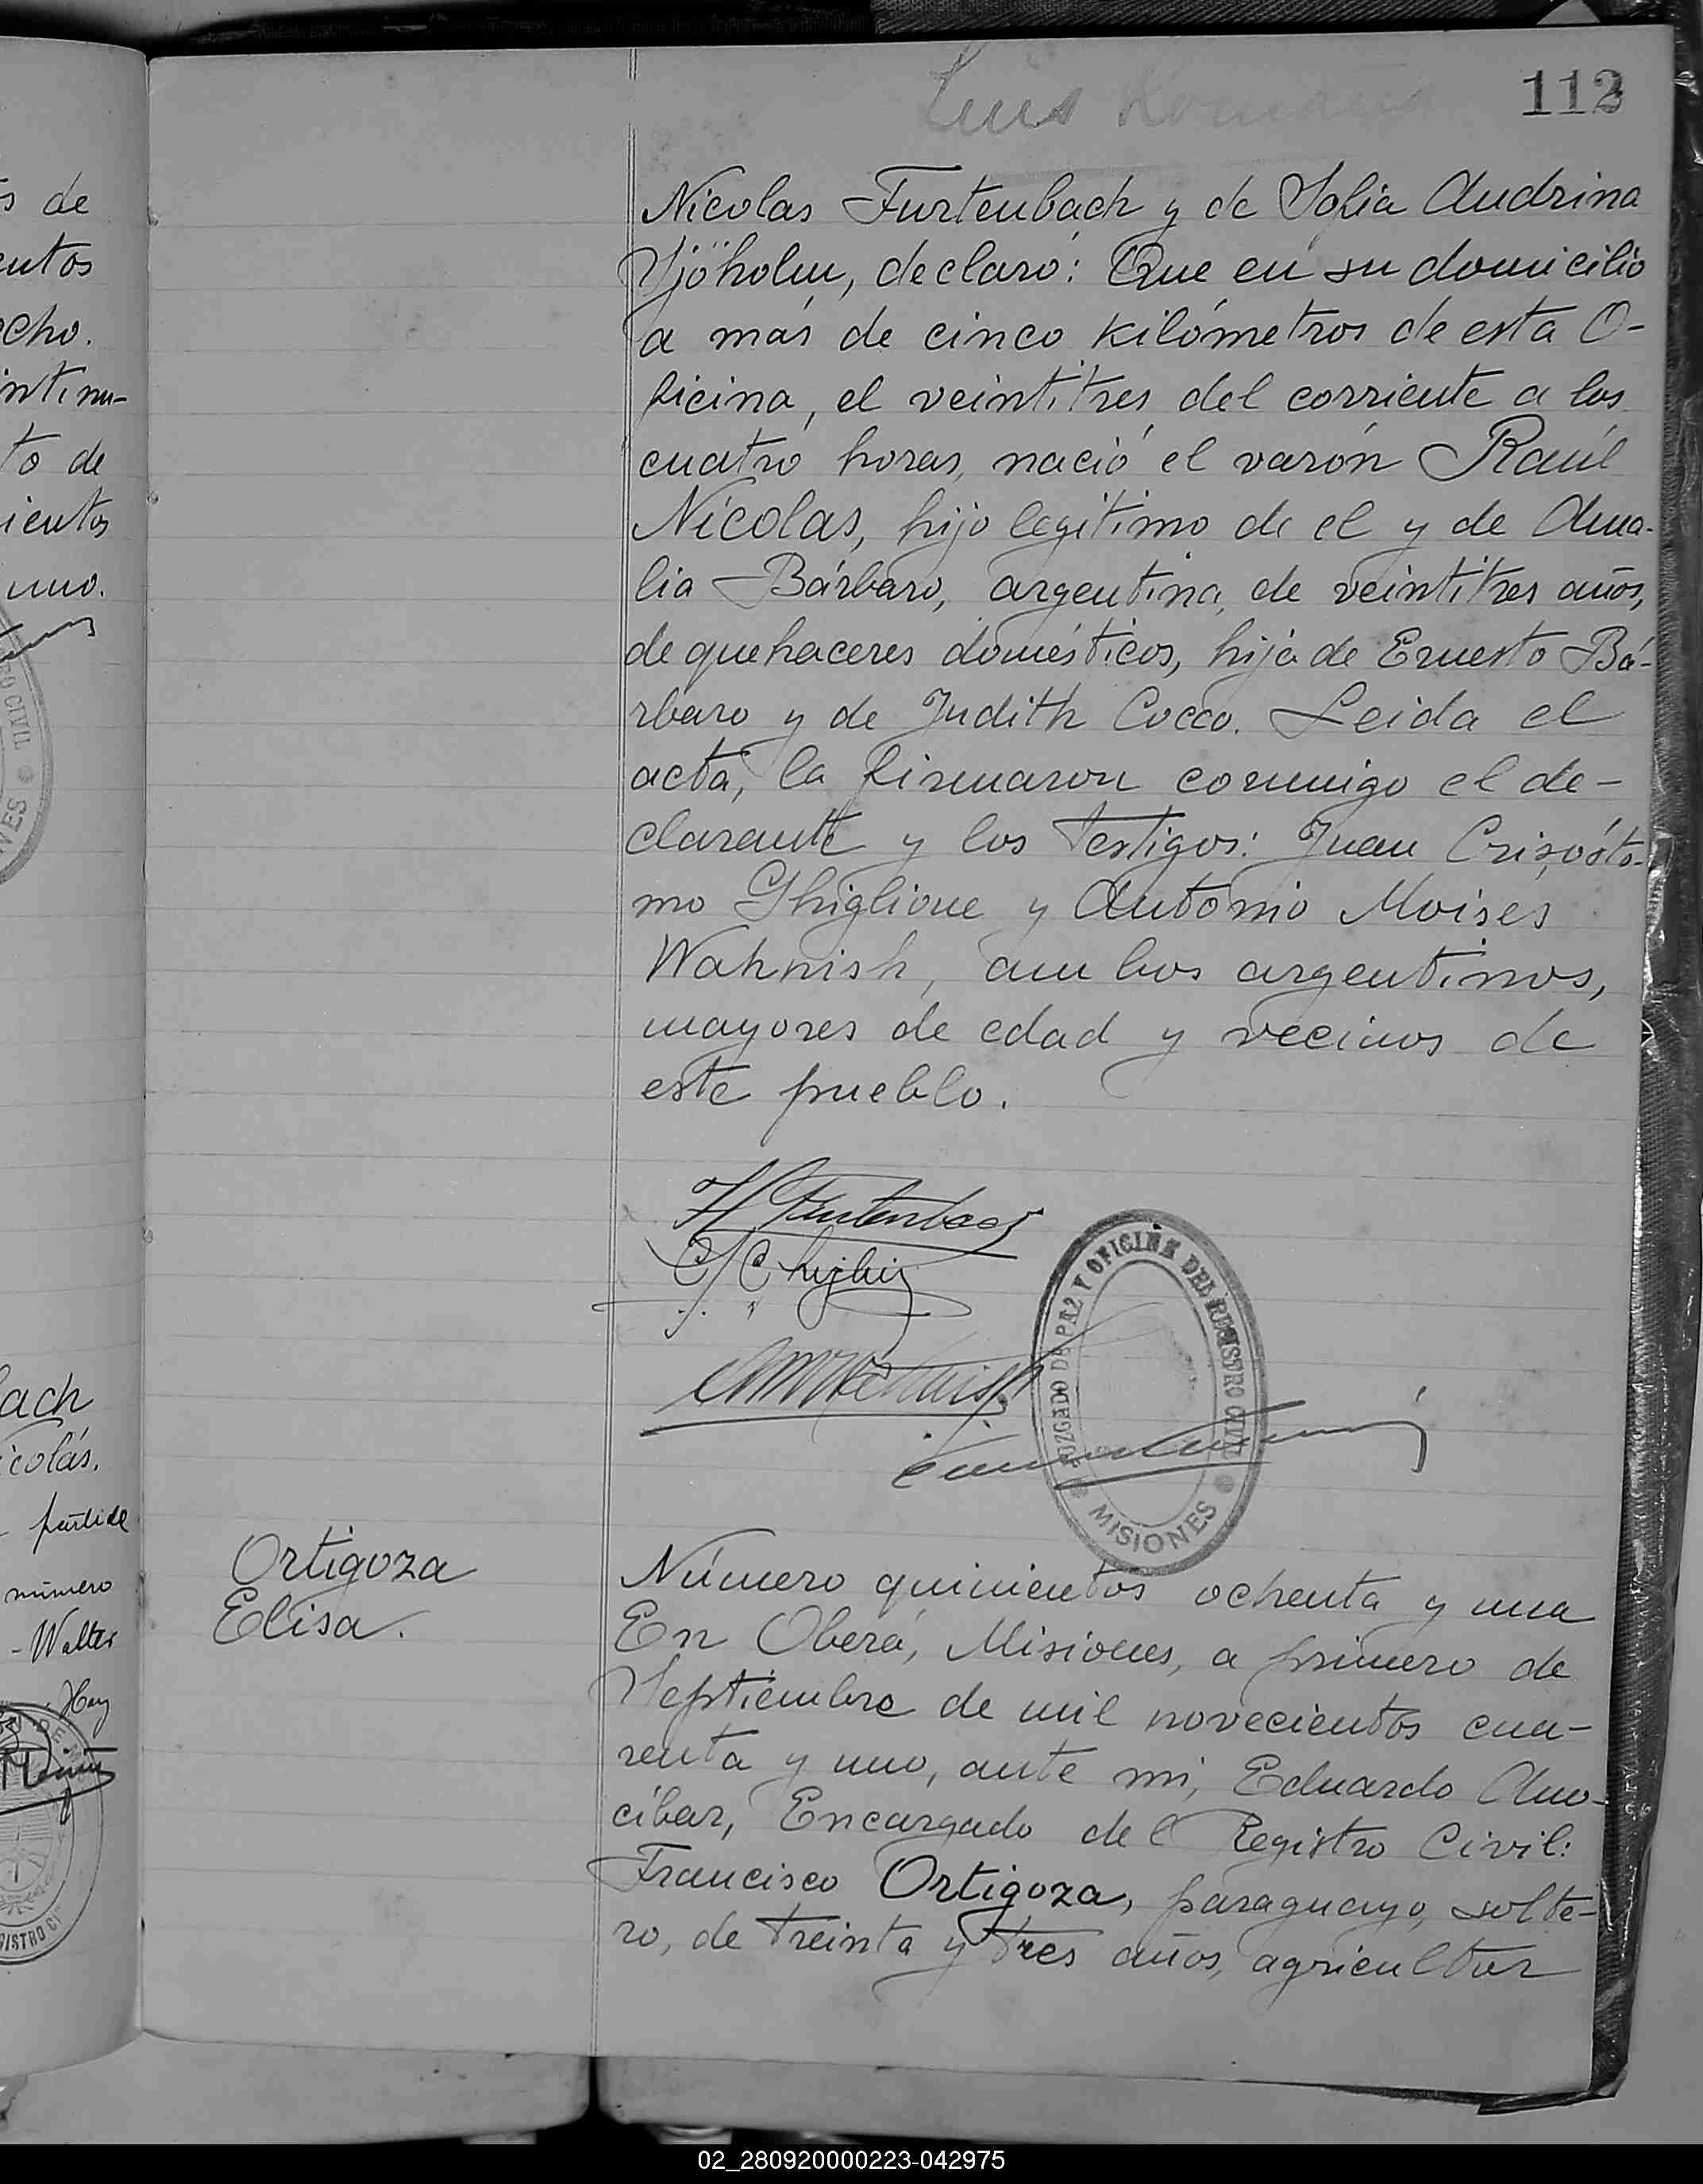 s de
entos
echo.
intinu-
to de
ientos
uno.
ach
icolás.
partida
número
- Walter
Hay
112
Luis
Nicolas Furtenbach y de Sofia Andrina
Sjöholm, declaró: Que en su domicilio
a más de cinco kilómetros de esta O-
ficina, el veintitres del corriente a las
cuatro horas, nació el varón Raúl
Nicolas, hijo legítimo de el y de Ama-
lia Bárbaro, argentina, de veintitres años,
de quehaceres domésticos, hija de Ernesto Bá-
rbaro y de Judith Cocco. Leida el
acta, la firmaron conmigo el de-
clarante y los testigos: Juan Crisósto-
mo Ghiglione y Antonio Moises
Wahnish, ambos argentinos,
mayores de edad y vecinos de
este pueblo.
JUZGADO DE PAZ Y OFICINA DEL REGISTRO CIVIL
MISIONES
Ortigoza
Elisa.
Número quinientos ochenta y una
En Oberá, Misiones, a primero de
Septiembre de mil novecientos cua-
renta y uno, ante mi, Eduardo Amo-
cibar, Encargado del Registro Civil:
Francisco Ortigoza, paraguayo, solte-
ro, de treinta y tres años, agricultor
02_280920000223-042975